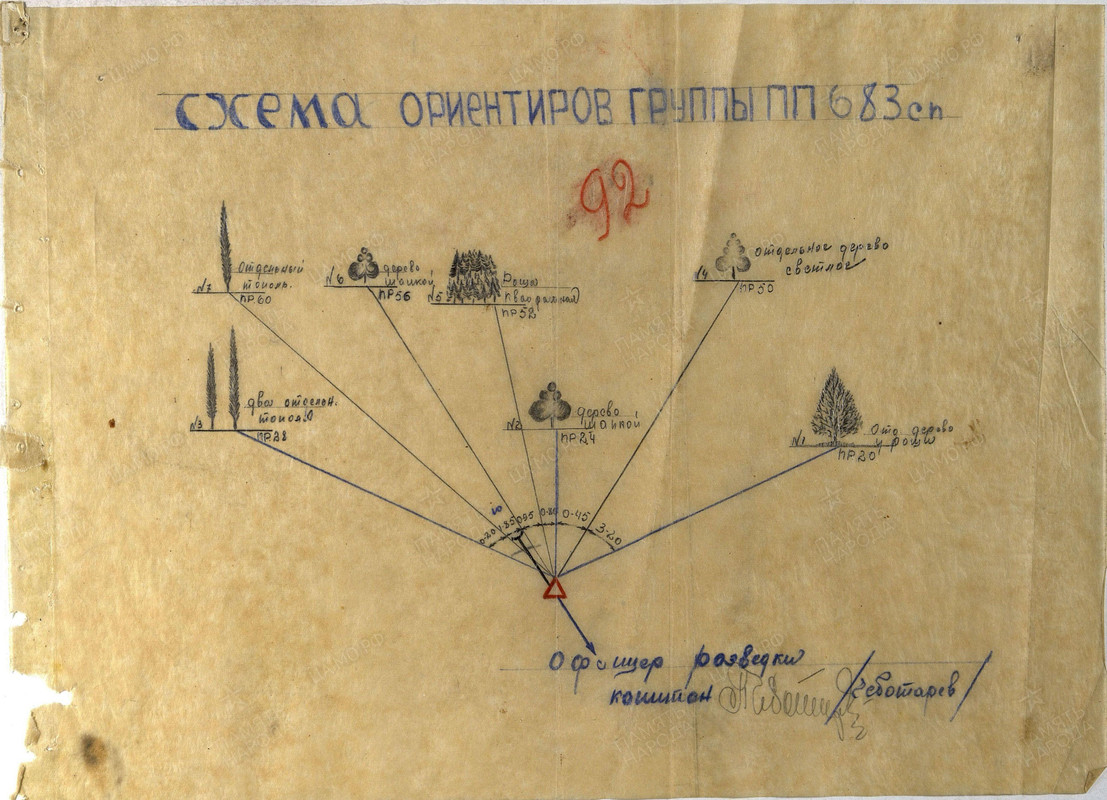 схема ОРИЕНТИРОВ ГРУППЫ ПП 683сп
92
№7 Отдельный
тополь.
ПР60
№6 дерево
шапкой
ПР56
№5 Роща
квадратная
ПР52
№4 отдельное дерево
светлое
ПР50
№3 два отделн.
тополя
ПР28
№2 дерево
шапкой
ПР24
№1 Отд дерево
у рощи
ПР20
0-20 1-85 0-95 0-80 0-45 3-20
Офицер розведки
капитан /Чеботарев/
ЦАМО.РФ
ПАМЯТЬ
НАРОДА